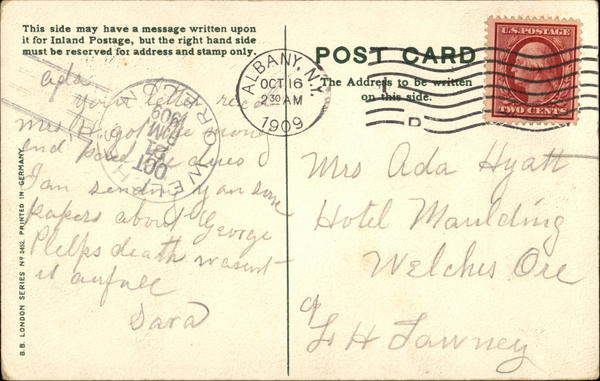 This side may have a message written upon
it for Inland Postage, but the right hand side
must be reserved for address and stamp only.
Ada
your letter rece
Mrs H got the money
and paid
I am sending you some
papers about George
Phelps death wasent
it awful
Sara
B.B. LONDON SERIES No 3452. PRINTED IN GERMANY.
WELCH OREGON
OCT
21
PM
1909
ALBANY, N.Y.
OCT 16
2 30 AM
1909
POST CARD
The Address to be written
on this side.
D
U.S. POSTAGE
TWO CENTS
Mrs Ada Hyatt
Hotel Maulding
Welches Ore
c/o
L H Tawney